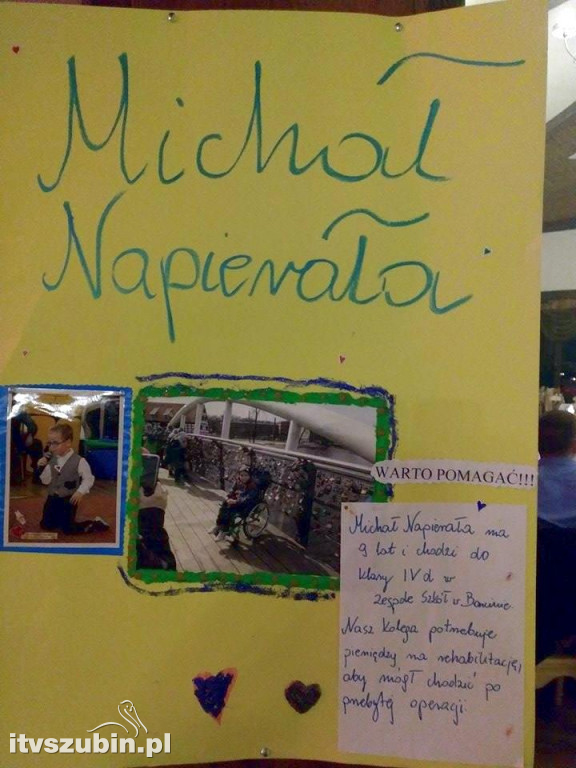 Michał
Napierała
WARTO POMAGAĆ!!!
Michał Napierała ma
9 lat i chodzi do
klasy IV d w
Zespole Szkół w
Nasz kolega potrzebuje
pieniędzy na rehabilitację,
aby mógł chodzić po
przebytej operacji.
itvszubin.pl